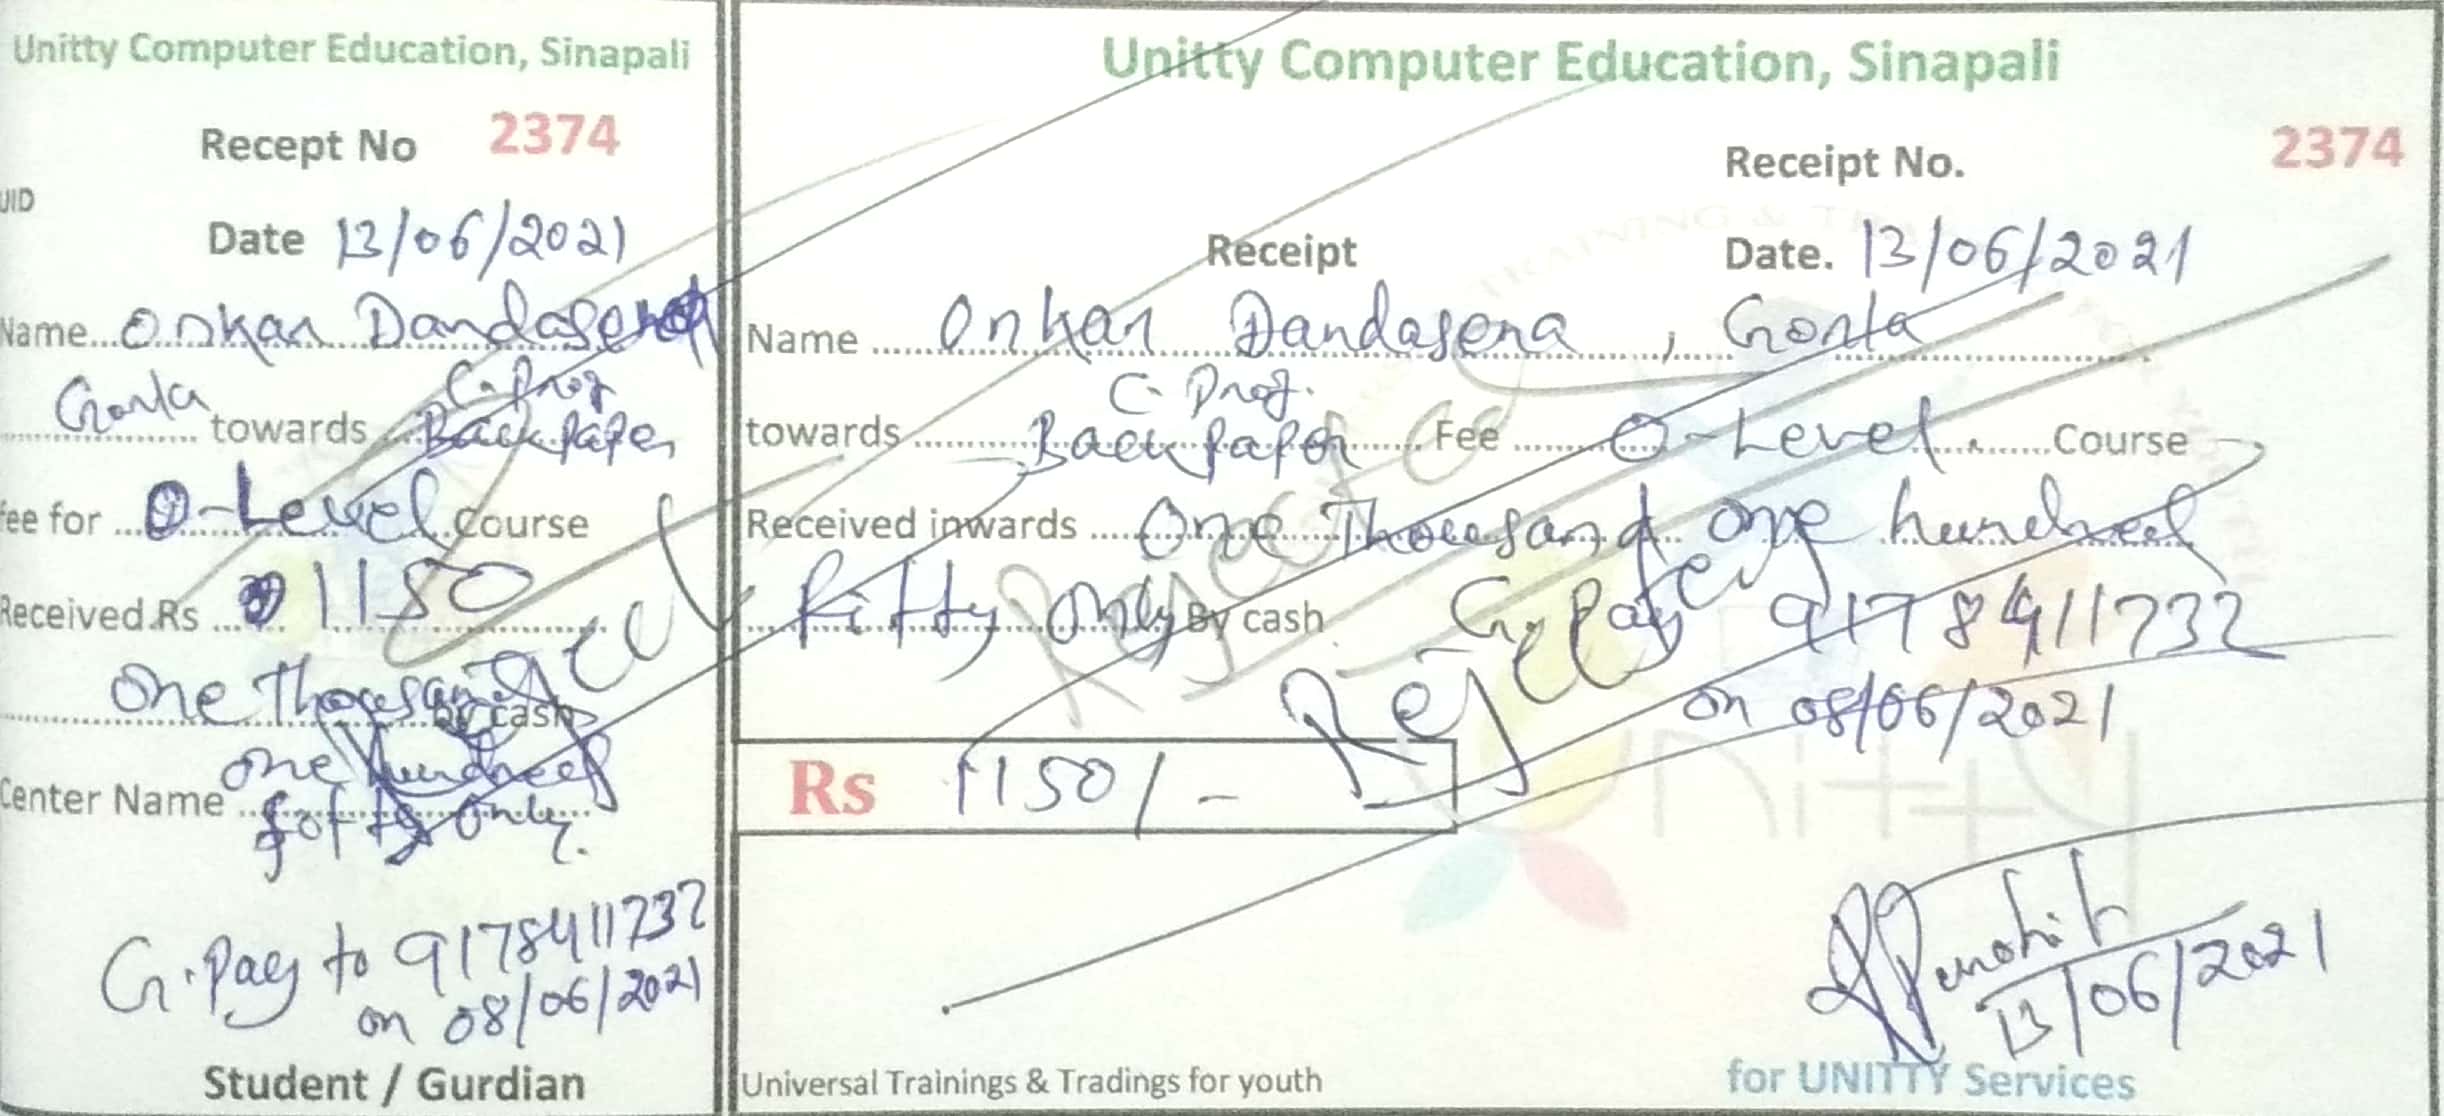 Unitty Computer Education, Sinapali
Recept No 2374
UID
Date 13/06/2021
Name... Onkar Dandasena
Gorla towards C-Prog
Back Paper
fee for ... O-Level Course
Received.Rs ... 1150
One Thousand by cash
one hundred
Center Name ... fifty only.
G.Pay to 9178411732
on 08/06/2021
Student / Gurdian
Unitty Computer Education, Sinapali
Receipt No. 2374
Receipt Date. 13/06/2021
Name ... Onkar Dandasena, Gorla
C-Prog.
towards ... Back Paper ... Fee ... O-Level ... Course
Received inwards ... One Thousand one hundred
fifty only By cash G.Pay 9178411732
on 08/06/2021
Rejected
Rejected
Rs 1150/-
Purohit
13/06/2021
Universal Trainings & Tradings for youth
for UNITTY Services